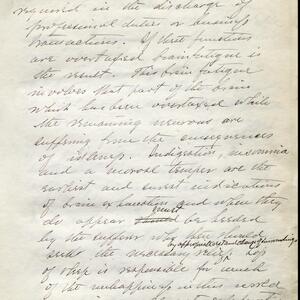 required in the discharge of
professional duties or business
transactions. If these functions
are overtaxed brain fatigue is
the result. This brain fatigue
involves that part of the brain
which has been overtaxed while
the remaining neurons are
suffering from the consequences
of. Indigestion, insomnia
and a morose temper are the
earliest and surest indications
of brain exhaustion and when they
do appear should must be heeded
by the sufferer who then should
by appropriate rest and change of surroundings
seek the necessary. Loss
of sleep is responsible for much
of the unhappiness in this world